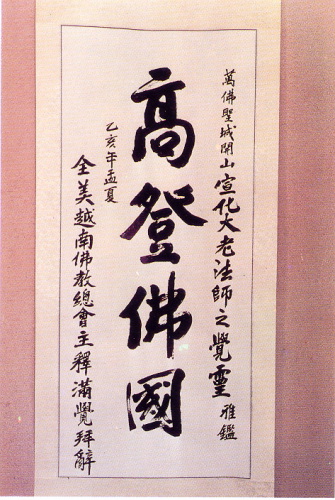 萬佛聖城開山宣化大老法師之覺靈雅鑑
高登佛國
乙亥年孟夏
全美越南佛教總會主釋滿覺拜辭